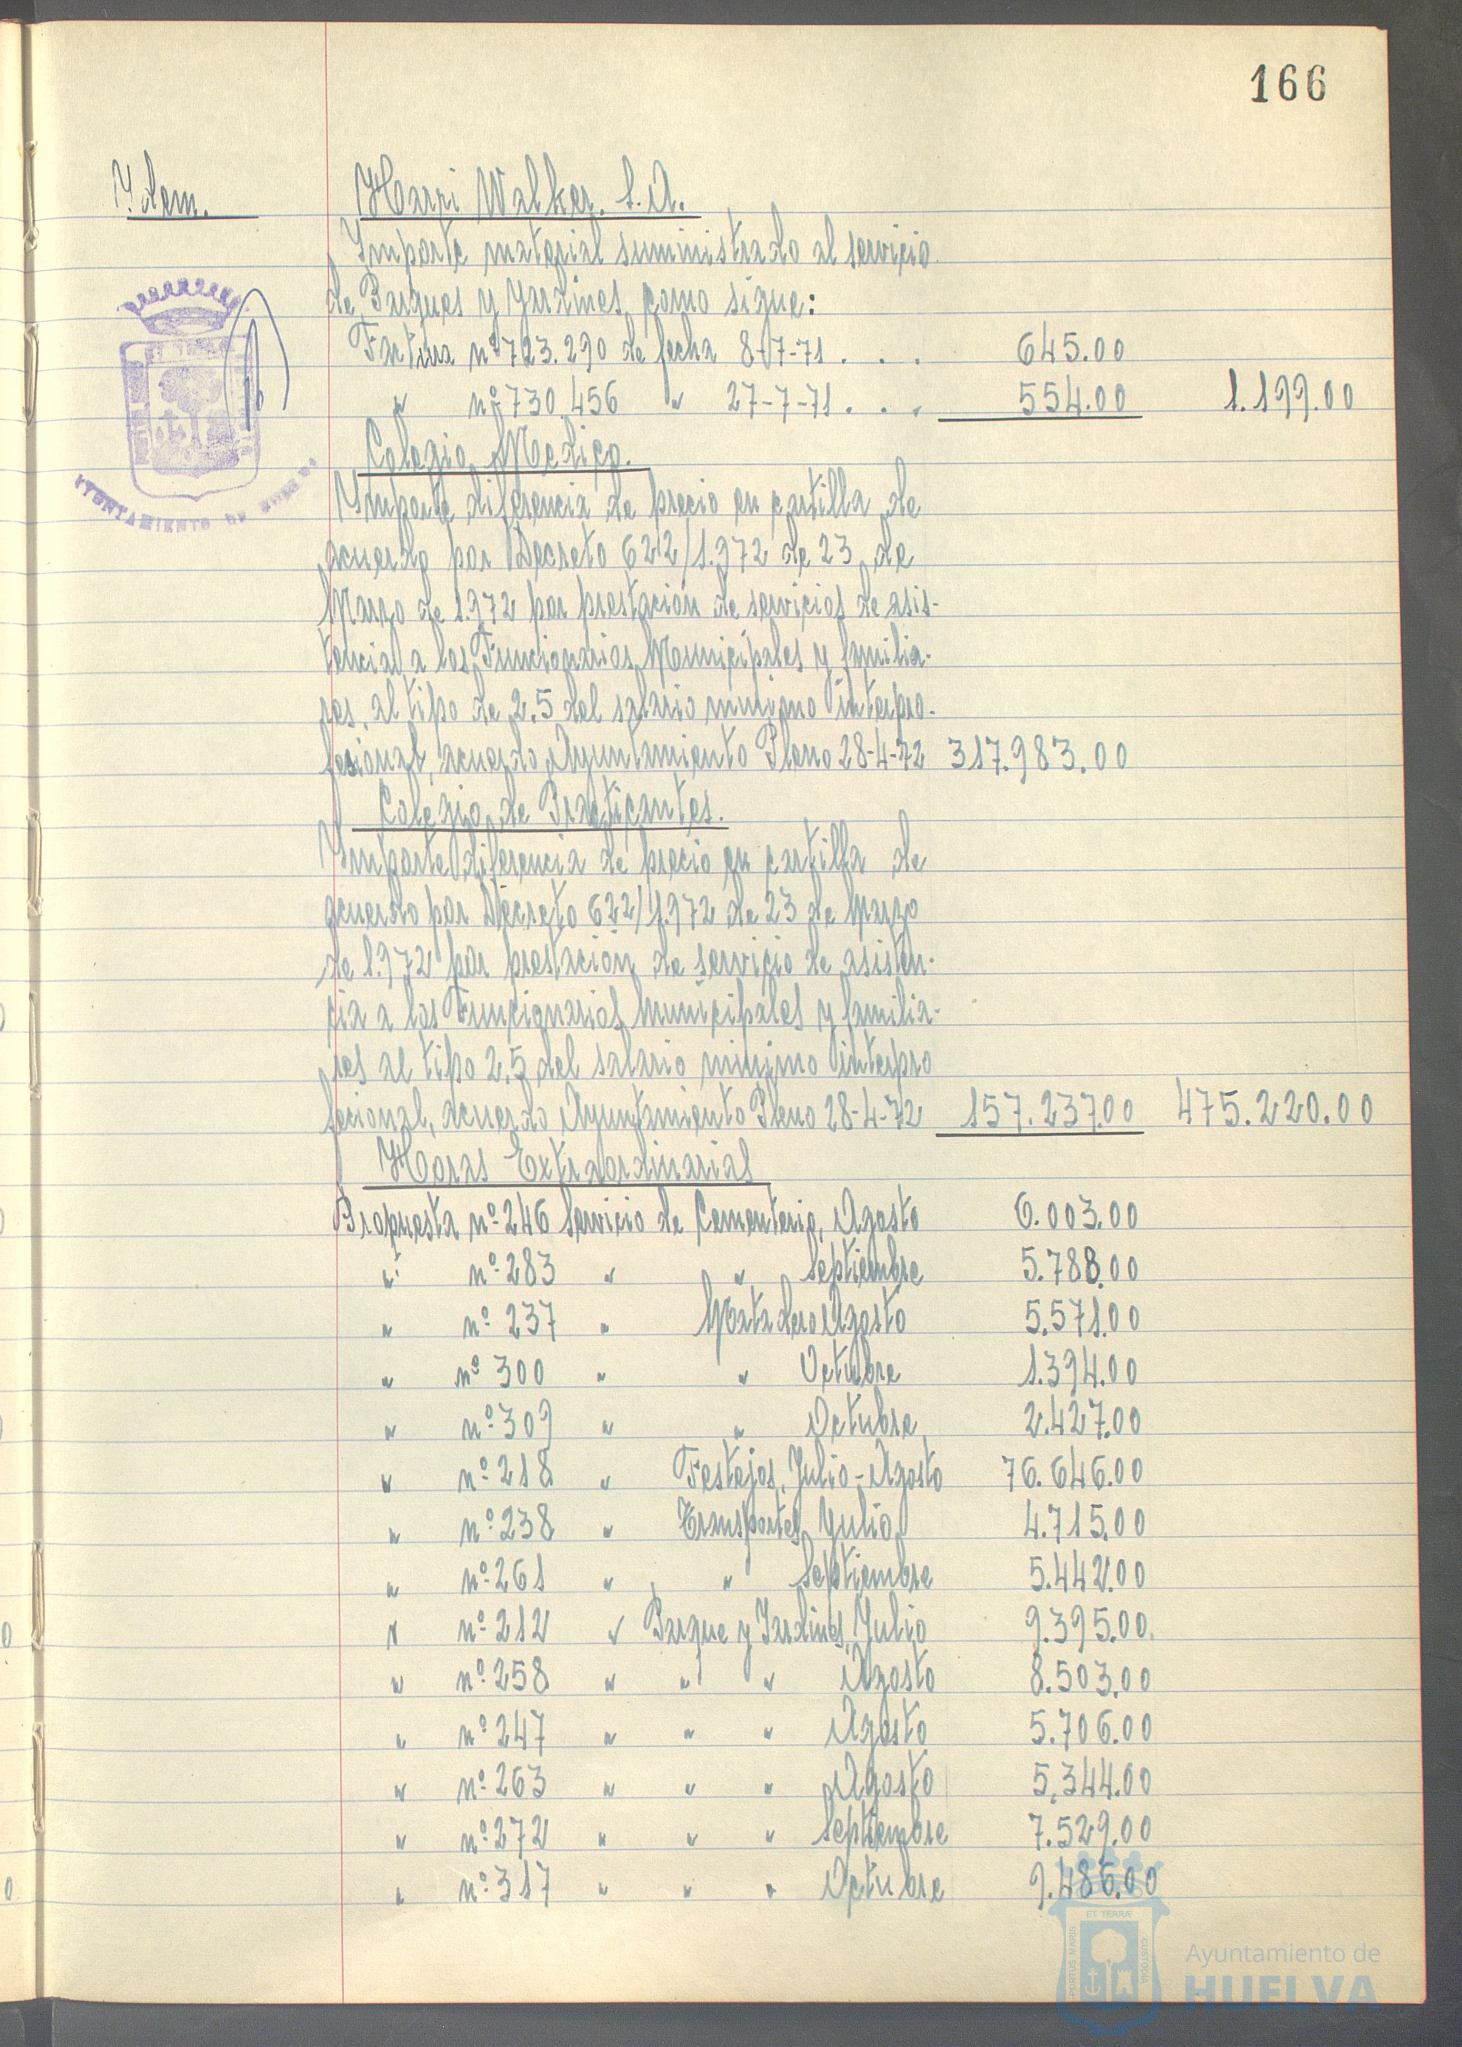 166
Y. dem.
Harri Walker. S.A.
Importe material suministrado al servicio
de Parques y Jardines, como sigue:
Factura nº 723.290 de fecha 8-7-71. . . 645.00
" nº 730.456 " 27-7-71. . . 554.00 1.199.00
Colegio Medico.
Importe diferencia de precio en cartilla de
acuerdo por Decreto 622/1.972 de 23 de
Marzo de 1.972 por prestación de servicios de asis-
tencia a los Funcionarios Municipales y familia-
res, al tipo de 2.5 del salario minimo interpro-
fesional, acuerdo Ayuntamiento Pleno 28-4-72 317.983.00
Colegio de Practicantes.
Importe diferencia de precio en cartilla de
acuerdo por Decreto 622/1.972 de 23 de Marzo
de 1.972 por prestación de servicio de asisten-
cia a los Funcionarios Municipales y familia-
res al tipo 2.5 del salario minimo interpro
fecional, acuerdo Ayuntamiento Pleno 28-4-72 157.237.00 475.220.00
Horas Extraordinarias
Propuesta nº 246 Servicio de Cementerio, Agosto 6.003.00
" nº 283 " " Septiembre 5.788.00
" nº 237 " Matadero Agosto 5.571.00
" nº 300 " " Octubre 1.394.00
" nº 309 " " Octubre 2.427.00
" nº 218 " Festejos, Julio-Agosto 76.646.00
" nº 238 " Transportes, Julio 4.715.00
" nº 261 " " Septiembre 5.442.00
" nº 212 " Parque y Jardines, Julio 9.395.00
" nº 258 " " " Agosto 8.503.00
" nº 247 " " " Agosto 5.706.00
" nº 263 " " " Agosto 5.344.00
" nº 272 " " " Septiembre 7.529.00
" nº 317 " " " Octubre 9.486.00
AYUNTAMIENTO DE HUELVA
PORTUS MARIS
ET TERRÆ
CUSTODIA
Ayuntamiento de
HUELVA